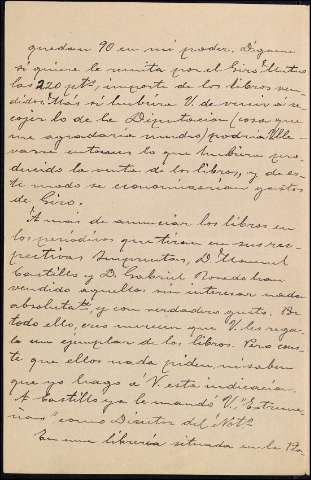 quedan 90 en mi poder. Dígame
si quiere le remita por el Giro Mutuo
las 220 pts, importe de los libros ven
didos. Mas si hubiera V. de venir a re
cojer lo de la Diputación (cosa que
me agradaría mucho) podría lle
varse entonces lo que hubiera pro
ducido la venta de los libros, y de es
te modo se economizarían gastos
de Giro.
A más de anunciar los libros en
los periódicos que tiran en sus res
pectivas Imprentas, D. Manuel
Castillo y D. Gabriel han
vendido aquellos sin interesar nada
absolutate, y con verdadero gusto. Por
todo ello, creo merecen que V. les rega
le un ejemplar de los libros. Pero cons
te que ellos nada piden, ni saben
que yo hago á V. esta indicación.
A Castillo ya le mandó V. "Extreme
ñas" como Director del "Notº
En una librería situada en la Pla